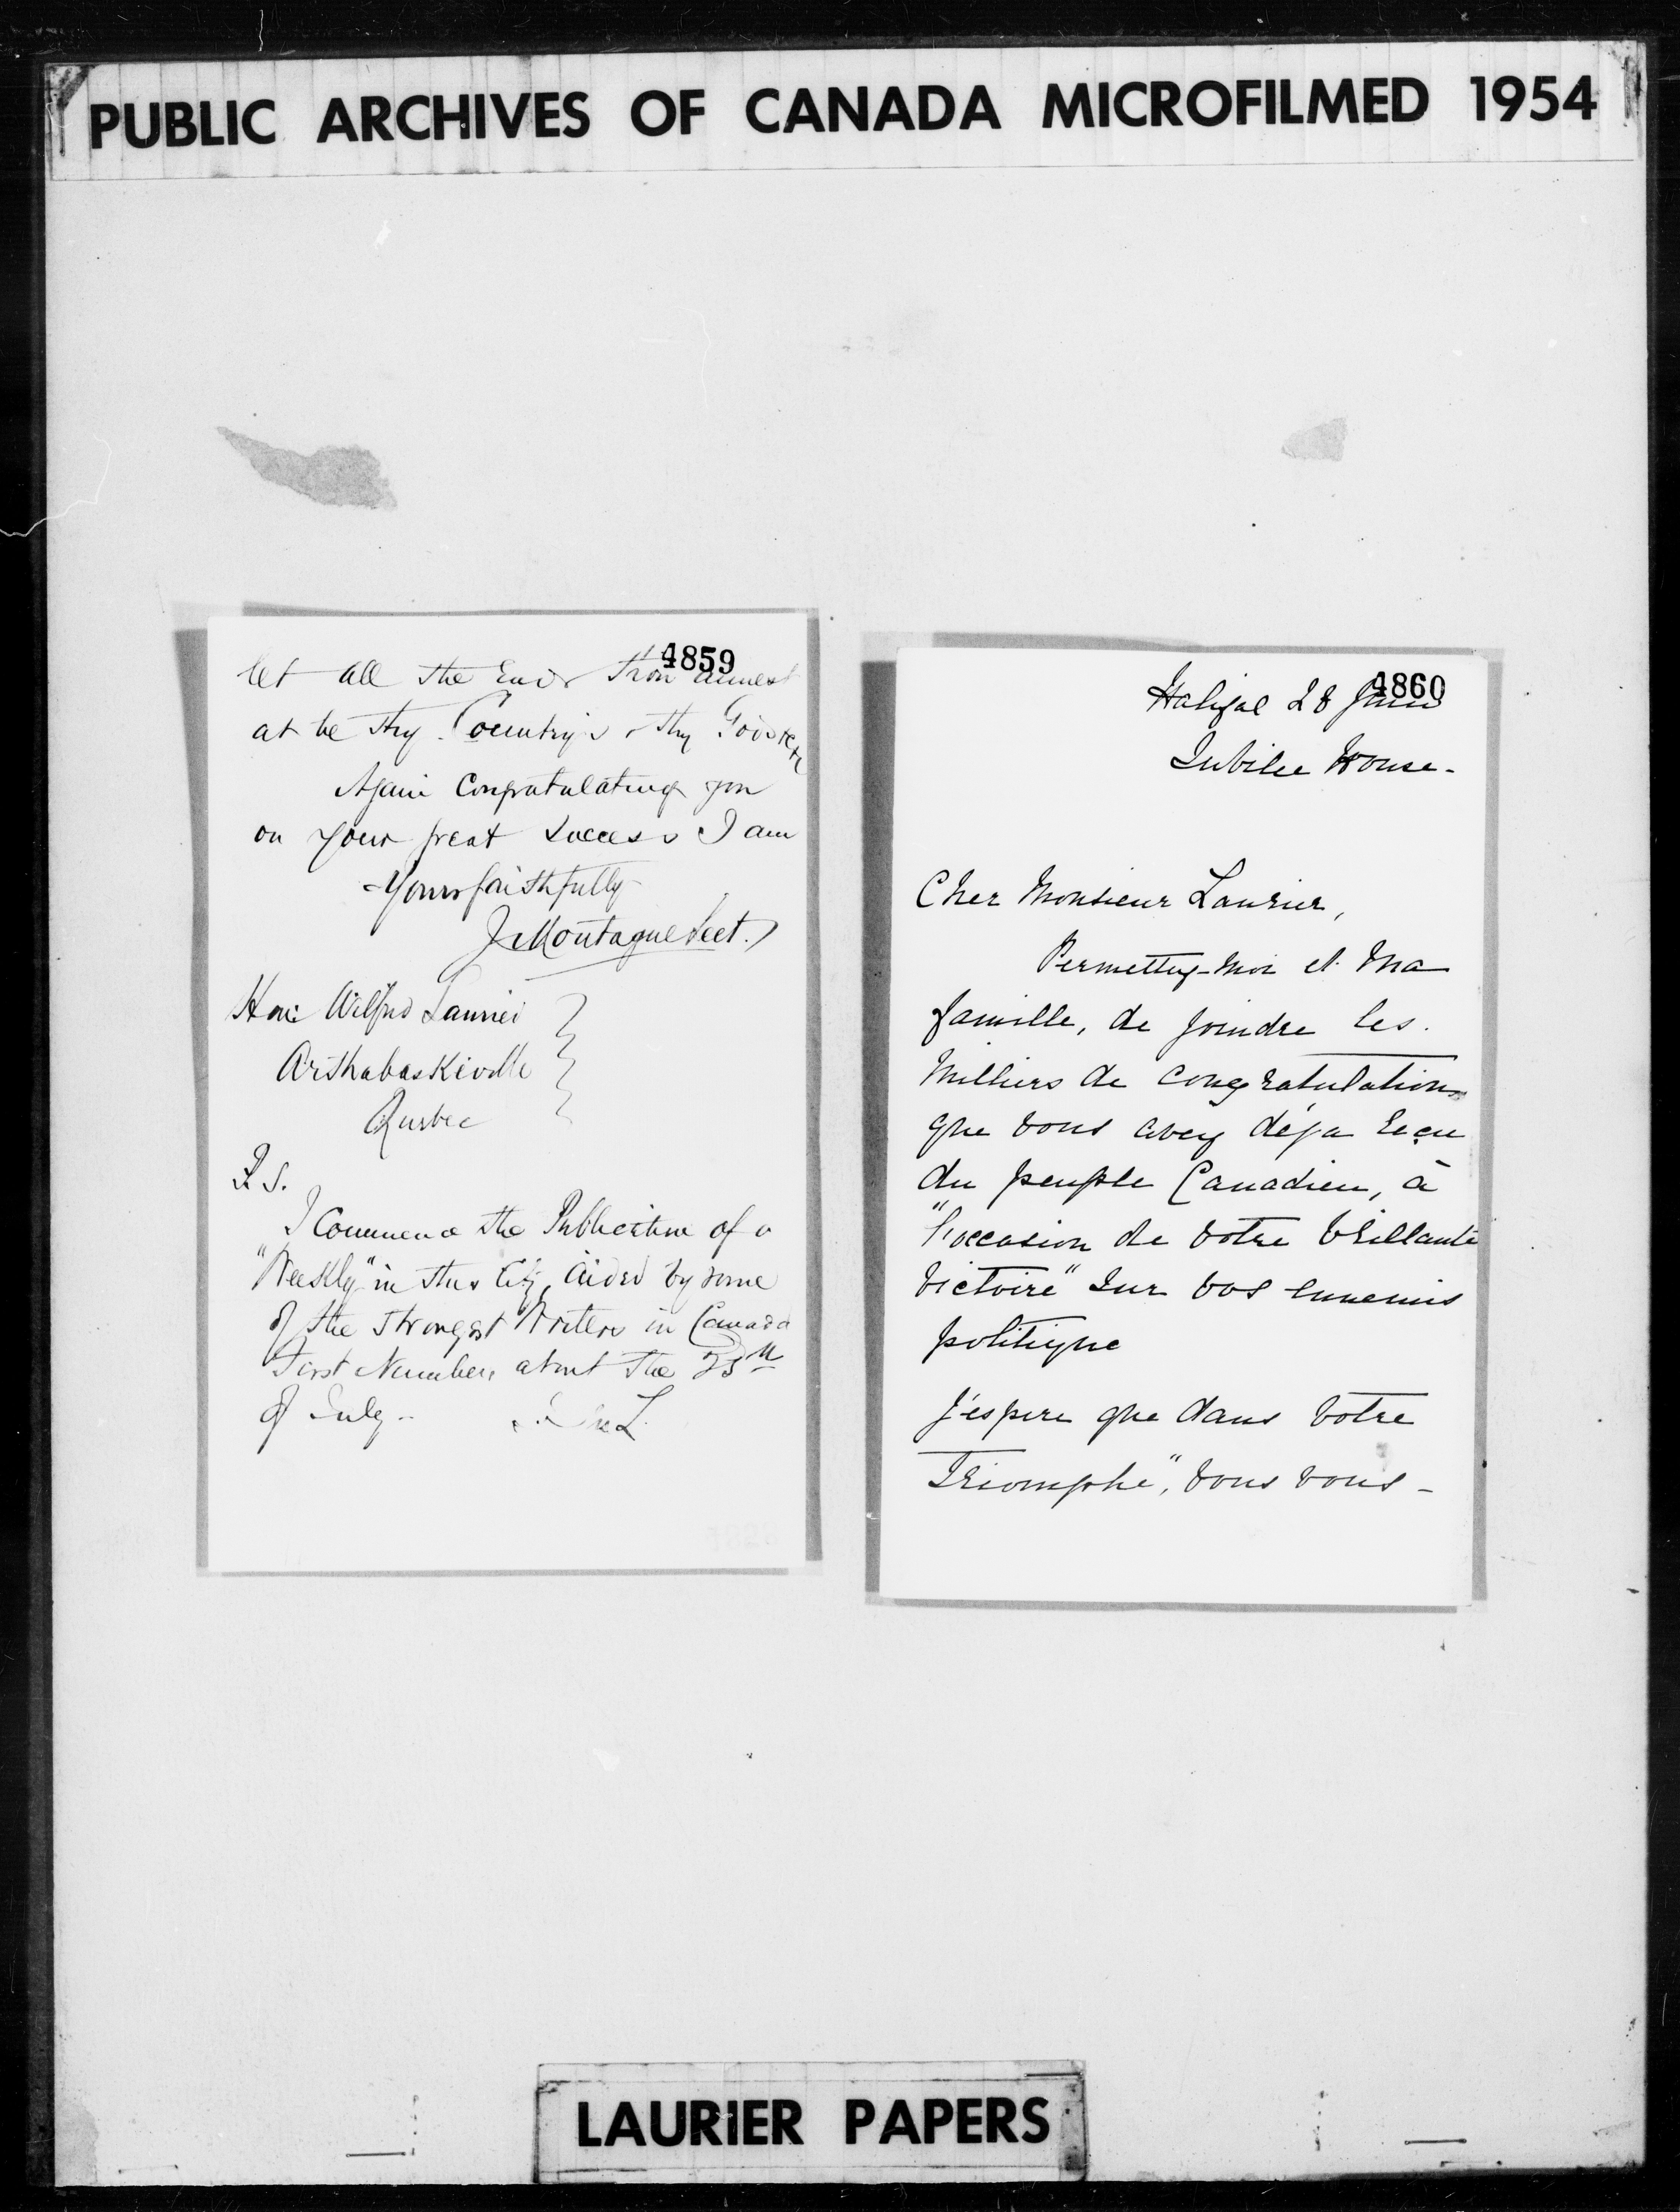 PUBLIC ARCHIVES OF CANADA MICROFILMED 1954
4859
let all the Ends thou aimest
at be thy Country's thy God's &c
Again Congratulating you
on your great success I am
Yours faithfully
J Montague Leet.
Hon: Wilfrid Laurier
Arthabaskiville
Quebec
P.S.
I Commence the Publication of a
"Weekly" in this City, aided by some
of the strongest Writers in Canada
First Number about the 25th
of July -
L.
4860
Halifax 28 Juin
Jubilee House -
Cher Monsieur Laurier,
Permettez-moi et ma
famille, de joindre les
milliers de congratulations
que vous avez déja reçu
du peuple Canadien, à
"l'occasion de votre brillante
victoire" sur vos ennemis
politique
J'éspere que dans votre
Triomphe", vous vous -
LAURIER PAPERS